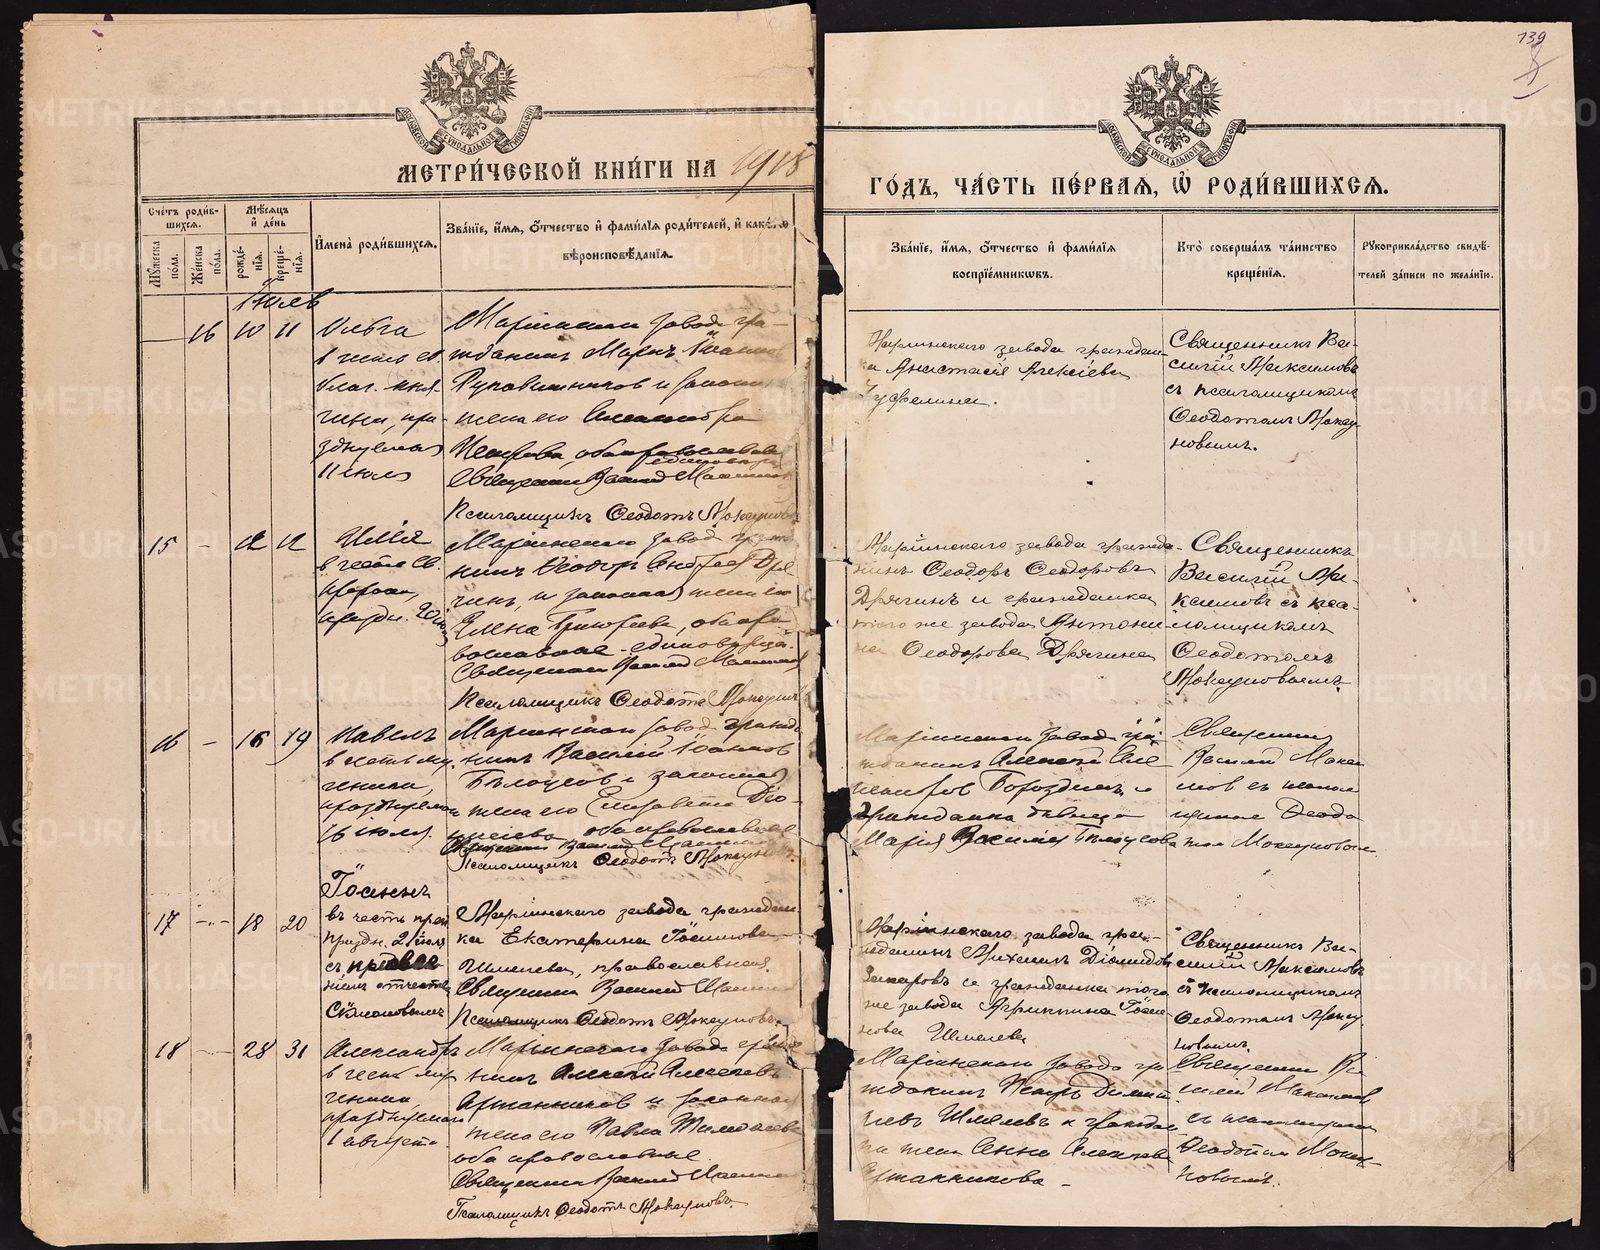 МЕТРИ́ЧЕСКОЙ КНИ́ГИ НА 1918
ГО́ДЪ, ЧА́СТЬ ПЕ́РВАЯ, Ѡ РОДИ́ВШИХСЯ.
139
Сче́тъ роди́в-
шихся.
Мѣ́сяцъ
и́ де́нь
Му́жеска
по́ла.
Же́нска
по́ла.
рожде́-
нїя.
креще́-
нїя.
И҆мена̀ роди́вшихся.
Зва́нїе, и҆́мя, ѻ҆́тчество и҆ фами́лїя роди́телей, и҆ како́гѡ
вѣроисповѣ́данїя.
Зва́нїе, и҆́мя, ѻ҆́тчество и҆ фами́лїя
воспрїе́мникѡвъ.
Кто̀ соверша́лъ та́инство
креще́нїя.
Рꙋкоприкла́дство свидѣ́-
телей за́писи по жела́нїю.
Іюль
16 10 11 Ольга
въ честь св.
благ. кня-
гини, пра-
зднуемыя
11 іюля
Маріинскаго завода гра-
жданинъ Маркъ Іоанновъ
Рукавишниковъ и законная
жена его Александра
Петрова, оба православные
Священникъ Василій Максимовъ
Псаломщикъ Ѳеодотъ Мокеуновъ
Маріинскаго завода граждан-
ка Анастасія Алексіева
Священникъ Ва-
силій Максимовъ
съ псаломщикомъ
Ѳеодотомъ Мокеу-
новымъ.
15 - 12 12 Илія
въ честь св.
пророка,
праздн. 20 іюля
Маріинскаго завода гражда-
нинъ Ѳеодоръ Андреевъ Дря-
гинъ, и законная жена его
Елена Григорьева, оба пра-
вославные - единовѣрцы.
Священникъ Василій Максимовъ
Псаломщикъ Ѳеодотъ Мокеуновъ
Маріинскаго завода гражда-
нинъ Ѳеодоръ Ѳеодоровъ
Дрягинъ и гражданка
того же завода Антони-
на Ѳеодорова Дрягина
Священникъ
Василій Ма-
ксимовъ съ пса-
ломщикомъ
Ѳеодотомъ
Мокеуновымъ.
16 - 16 19 Павелъ
въ честь му-
ченика,
празднуемаго
16 іюля.
Маріинскаго завода гражда-
нинъ Василій Іоанновъ
Бѣлоусовъ и законная
жена его Елизавета Діо-
нисіева, оба православные
Священникъ Василій Максимовъ
Псаломщикъ Ѳеодотъ Мокеуновъ.
Маріинскаго завода гра-
жданинъ Алексій Але-
ксандровъ Бороздинъ и
гражданка дѣвица
Марія Василіева Бѣлоусова
Священникъ
Василій Макси-
мовъ съ псалом-
щикомъ Ѳеодо-
томъ Мокеуновымъ
17 - 18 20 Іоаннъ
въ честь прп.
праздн. 21 іюля
съ
ніемъ отчества
Сѵмеоновымъ
Маріинскаго завода граждан-
ка Екатерина Іоаннова
Шмелева, православная.
Священникъ Василій Максимовъ
Псаломщикъ Ѳеодотъ Мокеуновъ.
Маріинскаго завода гра-
жданинъ Михаилъ Діомидовъ
Захаровъ и гражданка того
же завода Агриппина Іоан-
нова Шмелева
Священникъ Ва-
силій Максимовъ
съ псаломщикомъ
Ѳеодотомъ Мокеу-
новымъ.
18 - 28 31 Александръ
въ честь му-
ченика,
празднуемаго
1 августа
Маріинскаго завода гражда-
нинъ Алексій Алексѣевъ
Артанниковъ и законная
жена его Павла Тимоѳеева
оба православные.
Священникъ Василій Максимовъ
Псаломщикъ Ѳеодотъ Мокеуновъ.
Маріинскаго завода гра-
жданинъ Петръ Димит-
ріевъ Шмелевъ и граждан-
ка Анна Алексѣева
Артанникова -
Священникъ Ва-
силій Максимовъ
съ псаломщикомъ
Ѳеодотомъ Мокеу-
новымъ.
METRIKI.GASO-URAL.RU